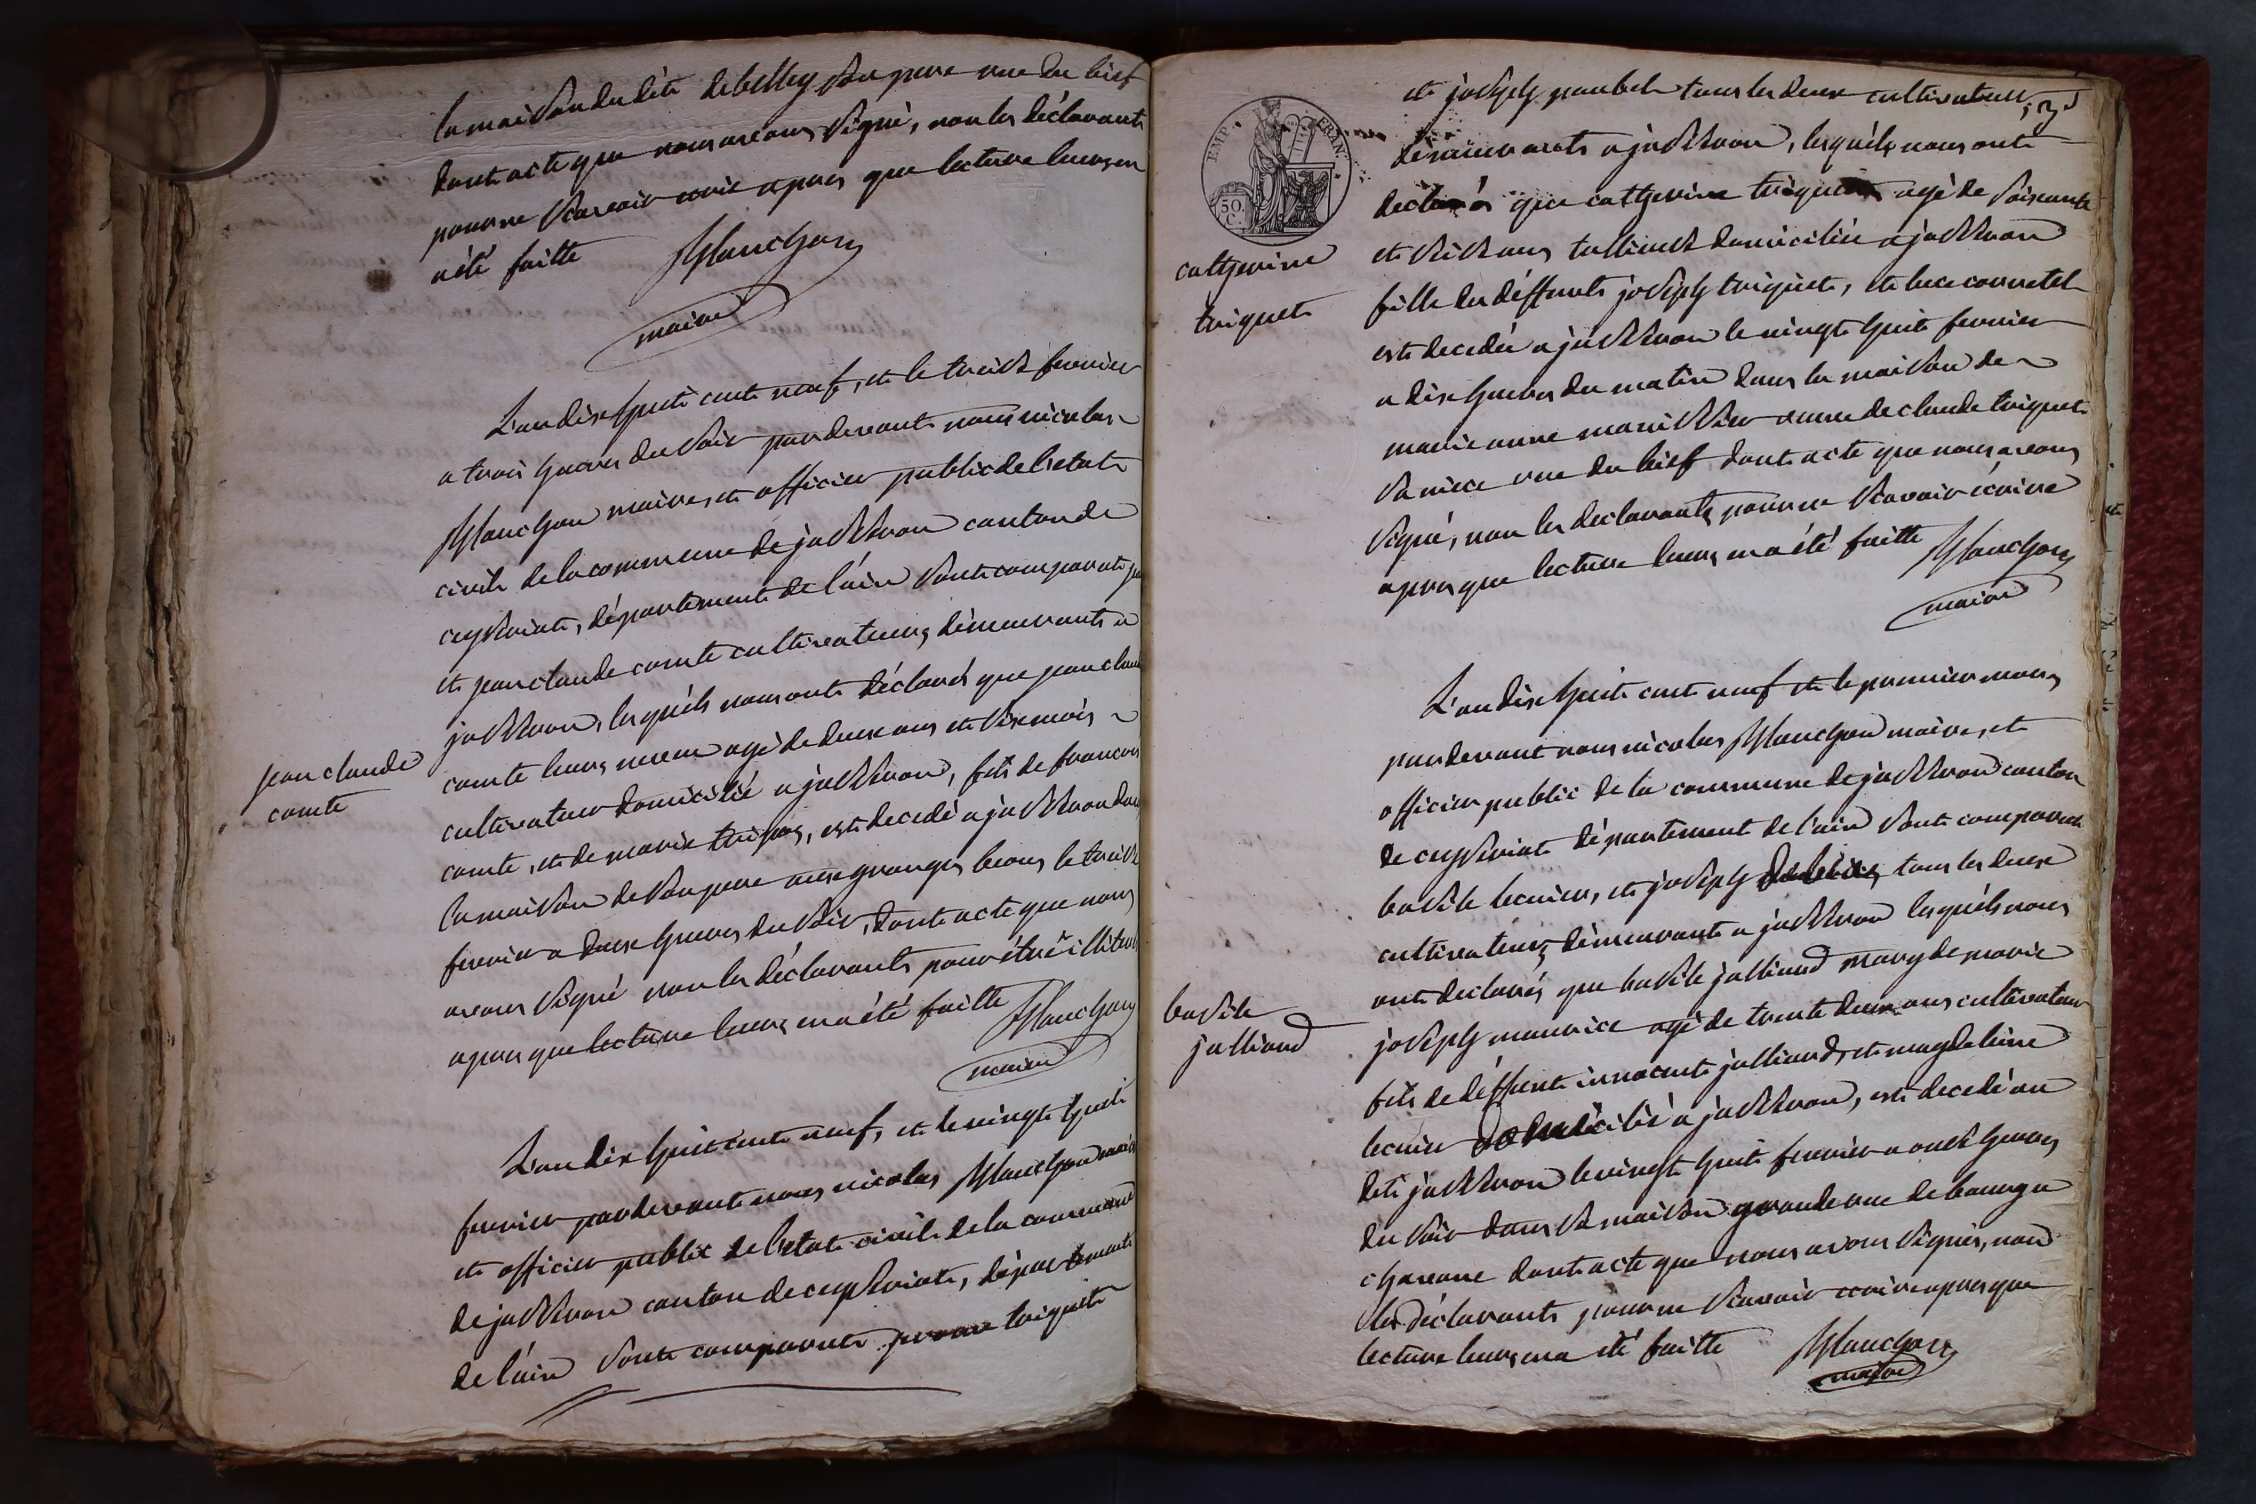 la maison du dit debelley son pere rue du bief
dont acte que nous avons signé, non les déclarants
pour ne scavoir ecrire apres que lecture leurs en
a été faitte
Planchon
maire
L'an dix huit cent neuf, et le treize fevrier
a trois heures du soir pardevant nous nicolas
Planchon maire, et officier public de l'etat
civil de la commune de jasseron canton de
ceyseriat, département de l'ain sont comparut
et jean claude comte cultivateurs, démeurants a
jasseron, lesquels nous ont déclarés que jean claude
comte leurs neveu agé de deux ans et six mois
cultivateur domicilié a jasseron, fils de francois
comte, et de marie, est decedé a jasseron dans
la maison de son pere aux granges le treize
fevrier a deux heures du soir, dont acte que nous
avons signé non les déclarants pour étre illitres
apres que lecture leurs en a été faitte
Planchon
maire
jean claude
comte
L'an dix huit cent neuf, et le vingt huit
fevrier pardevant nous nicolas Planchon maire
et officier public de l'etat civil de la commune
de jasseron canton de ceyseriat, département
de l'ain sont comparut pierre triquet
EMP. FRAN.
50 C.
et joseph paubel tous les deux cultivateurs
démeurants a jasseron, lesquels nous ont
declarés que catherine triquet agé de soixante
et seize ans domiciliée a jasseron
fille des déffunts joseph triquet, et
est decedée a jasseron le vingt huit fevrier
a dix heures du matin dans la maison de
marie anne marissier veuve de claude triquet
sa niece rue du bief dont acte que nous avons
signé, non les declarants pour ne scavoir écrire
apres que lecture leurs en a été faitte
Planchon
maire
catherine
triquet
L'an dix huit cent neuf et le premier mars
pardevant nous nicolas Planchon maire, et
officier public de la commune de jasseron canton
de ceyseriat département de l'ain sont comparut
basile lecuier, et joseph tous les deux
cultivateurs démeurants a jasseron lesquels nous
ont declarés que basile julliand mary de marie
joseph maurice agé de trente deux ans cultivateur
fils de déffunt innocent julliand, et magdeleine
lecuier domicilié a jasseron, est decedé au
dit jasseron le vingt huit fevrier a onze heures
du soir dans sa maison grande rue de bourg a
chavane dont acte que nous avons signés, non
les déclarants pour ne scavoir ecrire apres que
lecture leurs en a été faitte
Planchon
maire
basile
julliand